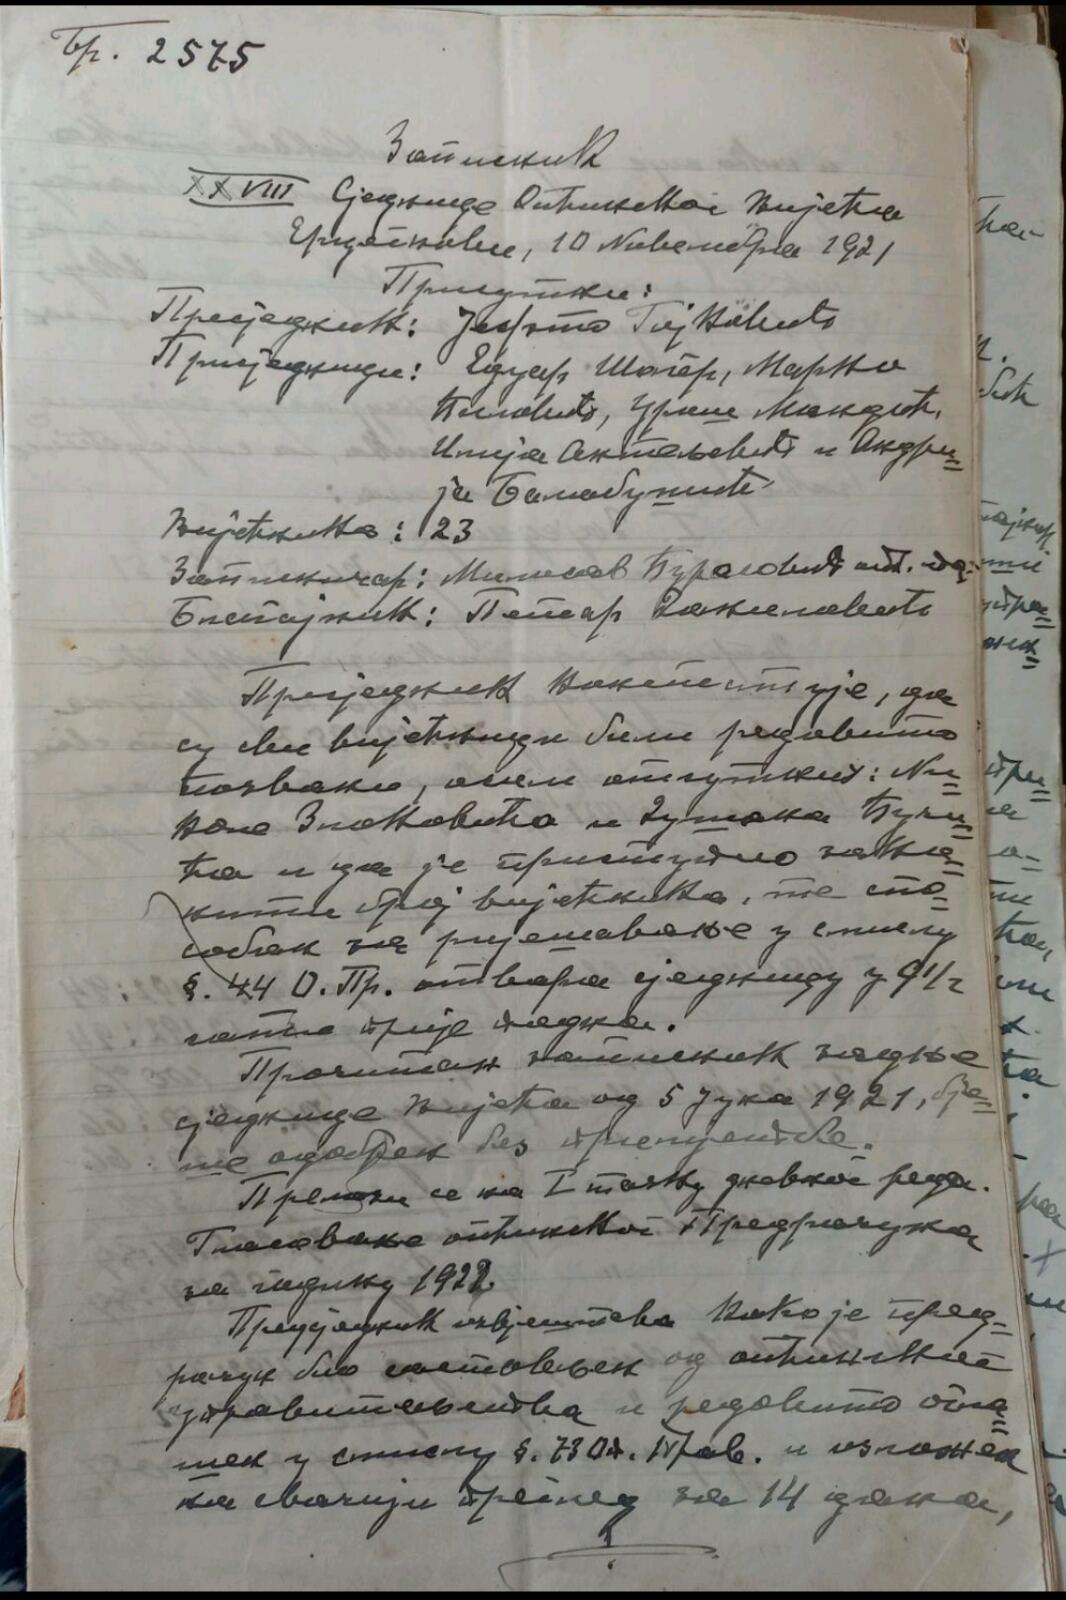 Бр. 2575
Записник
XXVIII Сједнице Опћинског Вијећа
Ерцегнови, 10 Новембра 1921
Присутни:
Предједник: Јефто Гојковић
Присједници: Едуар Шагер, Марко
Биловић, Урош Мандић,
Илија Антељевић и Андри=
ја Балабушић
Вијећника: 23
Записничар: Милосав Ђурасовић
Благајник: Петар
Присједник констатује, да
су сви вијећници били редовито
позвани, осем отсутних: Ни=
коле Злоковића и Ђури=
ћа и да је приступио
број вијећника, те спо=
собан за рјешавање у смислу
§. 44 О. Пр. отвара сједницу у 9 1/2
сати прије подна.
Прочитан записник задње
сједнице Вијећа од 5 Јуна 1921, би=
ше одобрен без примједбе.
Прелази се на I тачку дневног реда.
Гласовање опћинског Предрачуна
за годину 1922.
Предједник извјештава како је пред=
рачун био састављен од опћинског
управитељства и редовито огла=
шен у смислу §. 73 Оп. Прав. и изложен
на свачији преглед за 14 дана,